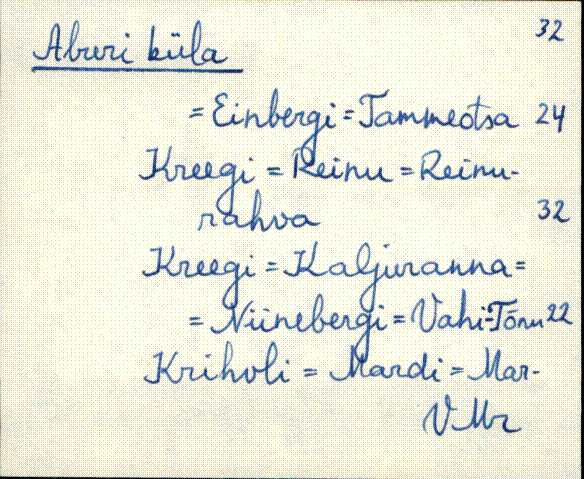 32
Aburi küla
= Einbergi = Tammeotsa 24
Kreegi = Reinu = Reinu-
rahva 32
Kreegi = Kaljuranna =
= Niinebergi = Vahi-Tõnu 22
Kriholi = Mardi = Mar-
V Mr